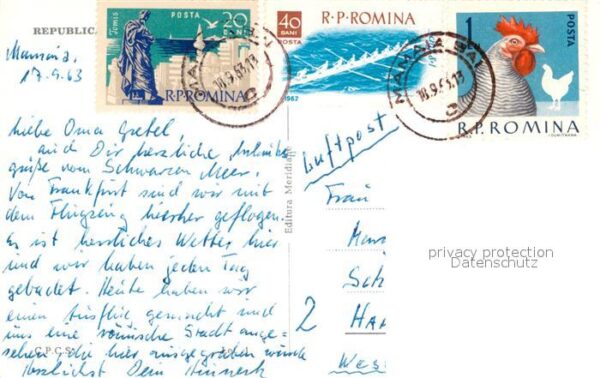 REPUBLICA
Mamaia,
17.9.63
Tomis
POSTA
20
BANI
R.P.ROMINA
40
BANI
POSTA
R.P.ROMINA
1962
1
POSTA
R.P. ROMINA
MAMAIA
18.9.63.13
MAMAIA SAT
18.9.63.13
Liebe Oma Gretel,
auch Dir herzliche Urlaubs
grüße vom Schwarzen Meer.
Von Frankfurt sind wir mit
dem Flugzeug hierher geflogen.
Es ist herrliches Wetter hier
und wir haben jeden Tag
gebadet. Heute haben wir
einen Ausflug gemacht und
uns eine römische Stadt ange=
sehen, die hier ausgegraben wurde
Herzlichst Dein Hinnerk
C.P.C.S.
Editura Meridiane
Luftpost
Frau
2
privacy protection
Datenschutz